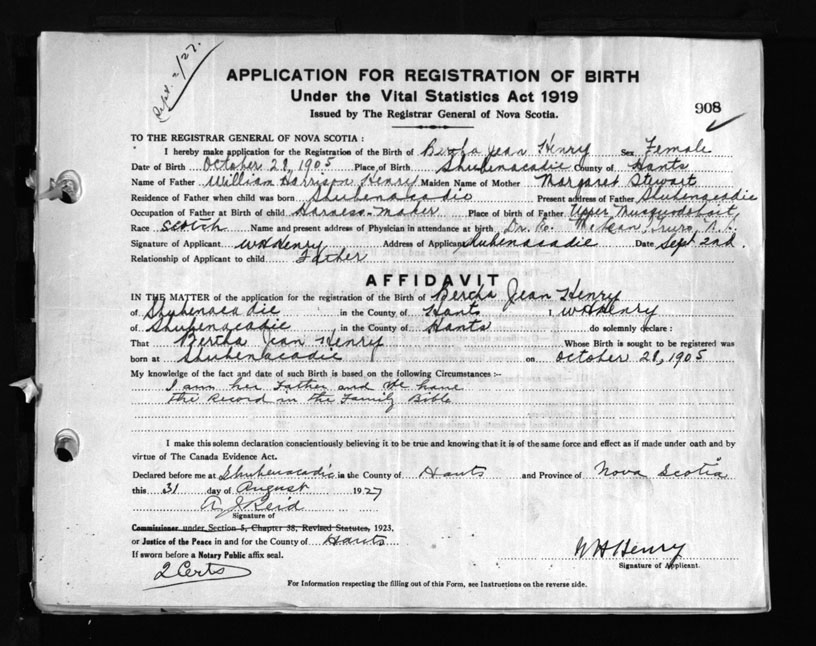 Sept. 2/27.
APPLICATION FOR REGISTRATION OF BIRTH
Under the Vital Statistics Act 1919
Issued by The Registrar General of Nova Scotia.
908
TO THE REGISTRAR GENERAL OF NOVA SCOTIA :
I hereby make application for the Registration of the Birth of Bertha Jean Henry Sex Female
Date of Birth October 28, 1905 Place of Birth Shubenacadie County of Hants
Name of Father William Harrison Henry Maiden Name of Mother Margaret Stewart
Residence of Father when child was born Shubenacadie Present address of Father Shubenacadie
Occupation of Father at Birth of child Harness-Maker Place of birth of Father Upper Musquodoboit
Race Scotch Name and present address of Physician in attendance at birth Dr. Truro, N.S.
Signature of Applicant WH Henry Address of Applicant Shubenacadie Date Sept 2nd.
Relationship of Applicant to child Father
AFFIDAVIT
IN THE MATTER of the application for the registration of the Birth of Bertha Jean Henry
of Shubenacadie in the County of Hants I, WH Henry
of Shubenacadie in the County of Hants do solemnly declare :
That Bertha Jean Henry Whose Birth is sought to be registered was
born at Shubenacadie on October 28, 1905
My knowledge of the fact and date of such Birth is based on the following Circumstances :-
I am her Father and We have
the Record in the Family Bible
I make this solemn declaration conscientiously believing it to be true and knowing that it is of the same force and effect as if made under oath and by
virtue of The Canada Evidence Act.
Declared before me at Shubenacadie in the County of Hants and Province of Nova Scotia
this 31 day of August 1927
A J Reid
Signature of
Commissioner under Section 5, Chapter 38, Revised Statutes, 1923,
or Justice of the Peace in and for the County of Hants
If sworn before a Notary Public affix seal.
WH Henry
Signature of Applicant.
2 Certs
For Information respecting the filling out of this Form, see Instructions on the reverse side.